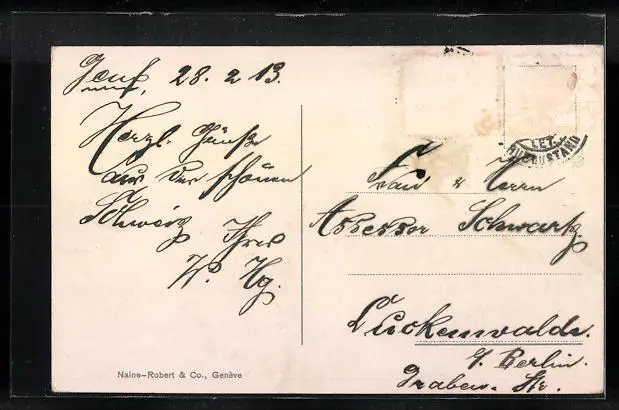 Genf, 28. 2 13.
Herzl. Grüße
aus der schönen
Schweiz Ihres
W. Hg.
Naine—Robert & Co., Genève
LET.
Frau u Herrn
Assessor Schwartz.
Luckenwalde.
b. Berlin.
Graben-Str.